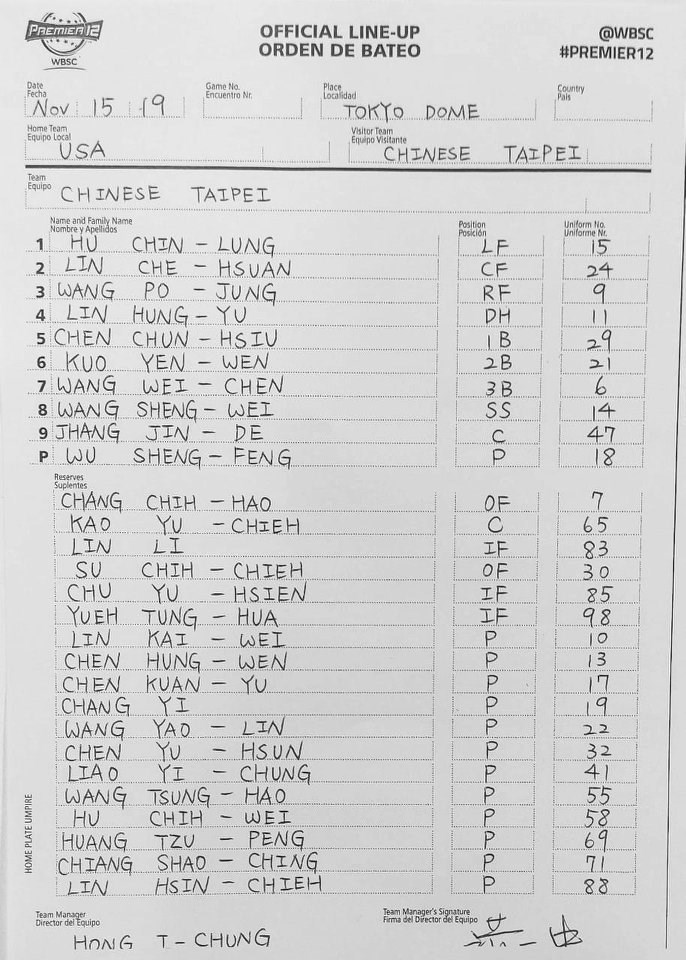 PREMIER 12
WBSC
OFFICIAL LINE-UP
ORDEN DE BATEO
@WBSC
#PREMIER12
Date
Fecha
Nov 15 19
Game No.
Encuentro Nr.
Place
Localidad
TOKYO DOME
Country
País
Home Team
Equipo Local
USA
Visitor Team
Equipo Visitante
CHINESE TAIPEI
Team
Equipo
CHINESE TAIPEI
Name and Family Name
Nombre y Apellidos
Position
Posición
Uniform No.
Uniforme Nr.
1 HU CHIN - LUNG LF 15
2 LIN CHE - HSUAN CF 24
3 WANG PO - JUNG RF 9
4 LIN HUNG - YU DH 11
5 CHEN CHUN - HSIU 1B 29
6 KUO YEN - WEN 2B 21
7 WANG WEI - CHEN 3B 6
8 WANG SHENG - WEI SS 14
9 JHANG JIN - DE C 47
P WU SHENG - FENG P 18
Reserves
Suplentes
CHANG CHIH - HAO OF 7
KAO YU - CHIEH C 65
LIN LI IF 83
SU CHIH - CHIEH OF 30
CHU YU - HSIEN IF 85
YUEH TUNG - HUA IF 98
LIN KAI - WEI P 10
CHEN HUNG - WEN P 13
CHEN KUAN - YU P 17
CHANG YI P 19
WANG YAO - LIN P 22
CHEN YU - HSUN P 32
LIAO YI - CHUNG P 41
WANG TSUNG - HAO P 55
HU CHIH - WEI P 58
HUANG TZU - PENG P 69
CHIANG SHAO - CHING P 71
LIN HSIN - CHIEH P 88
HOME PLATE UMPIRE
Team Manager
Director del Equipo
HONG I - CHUNG
Team Manager's Signature
Firma del Director del Equipo